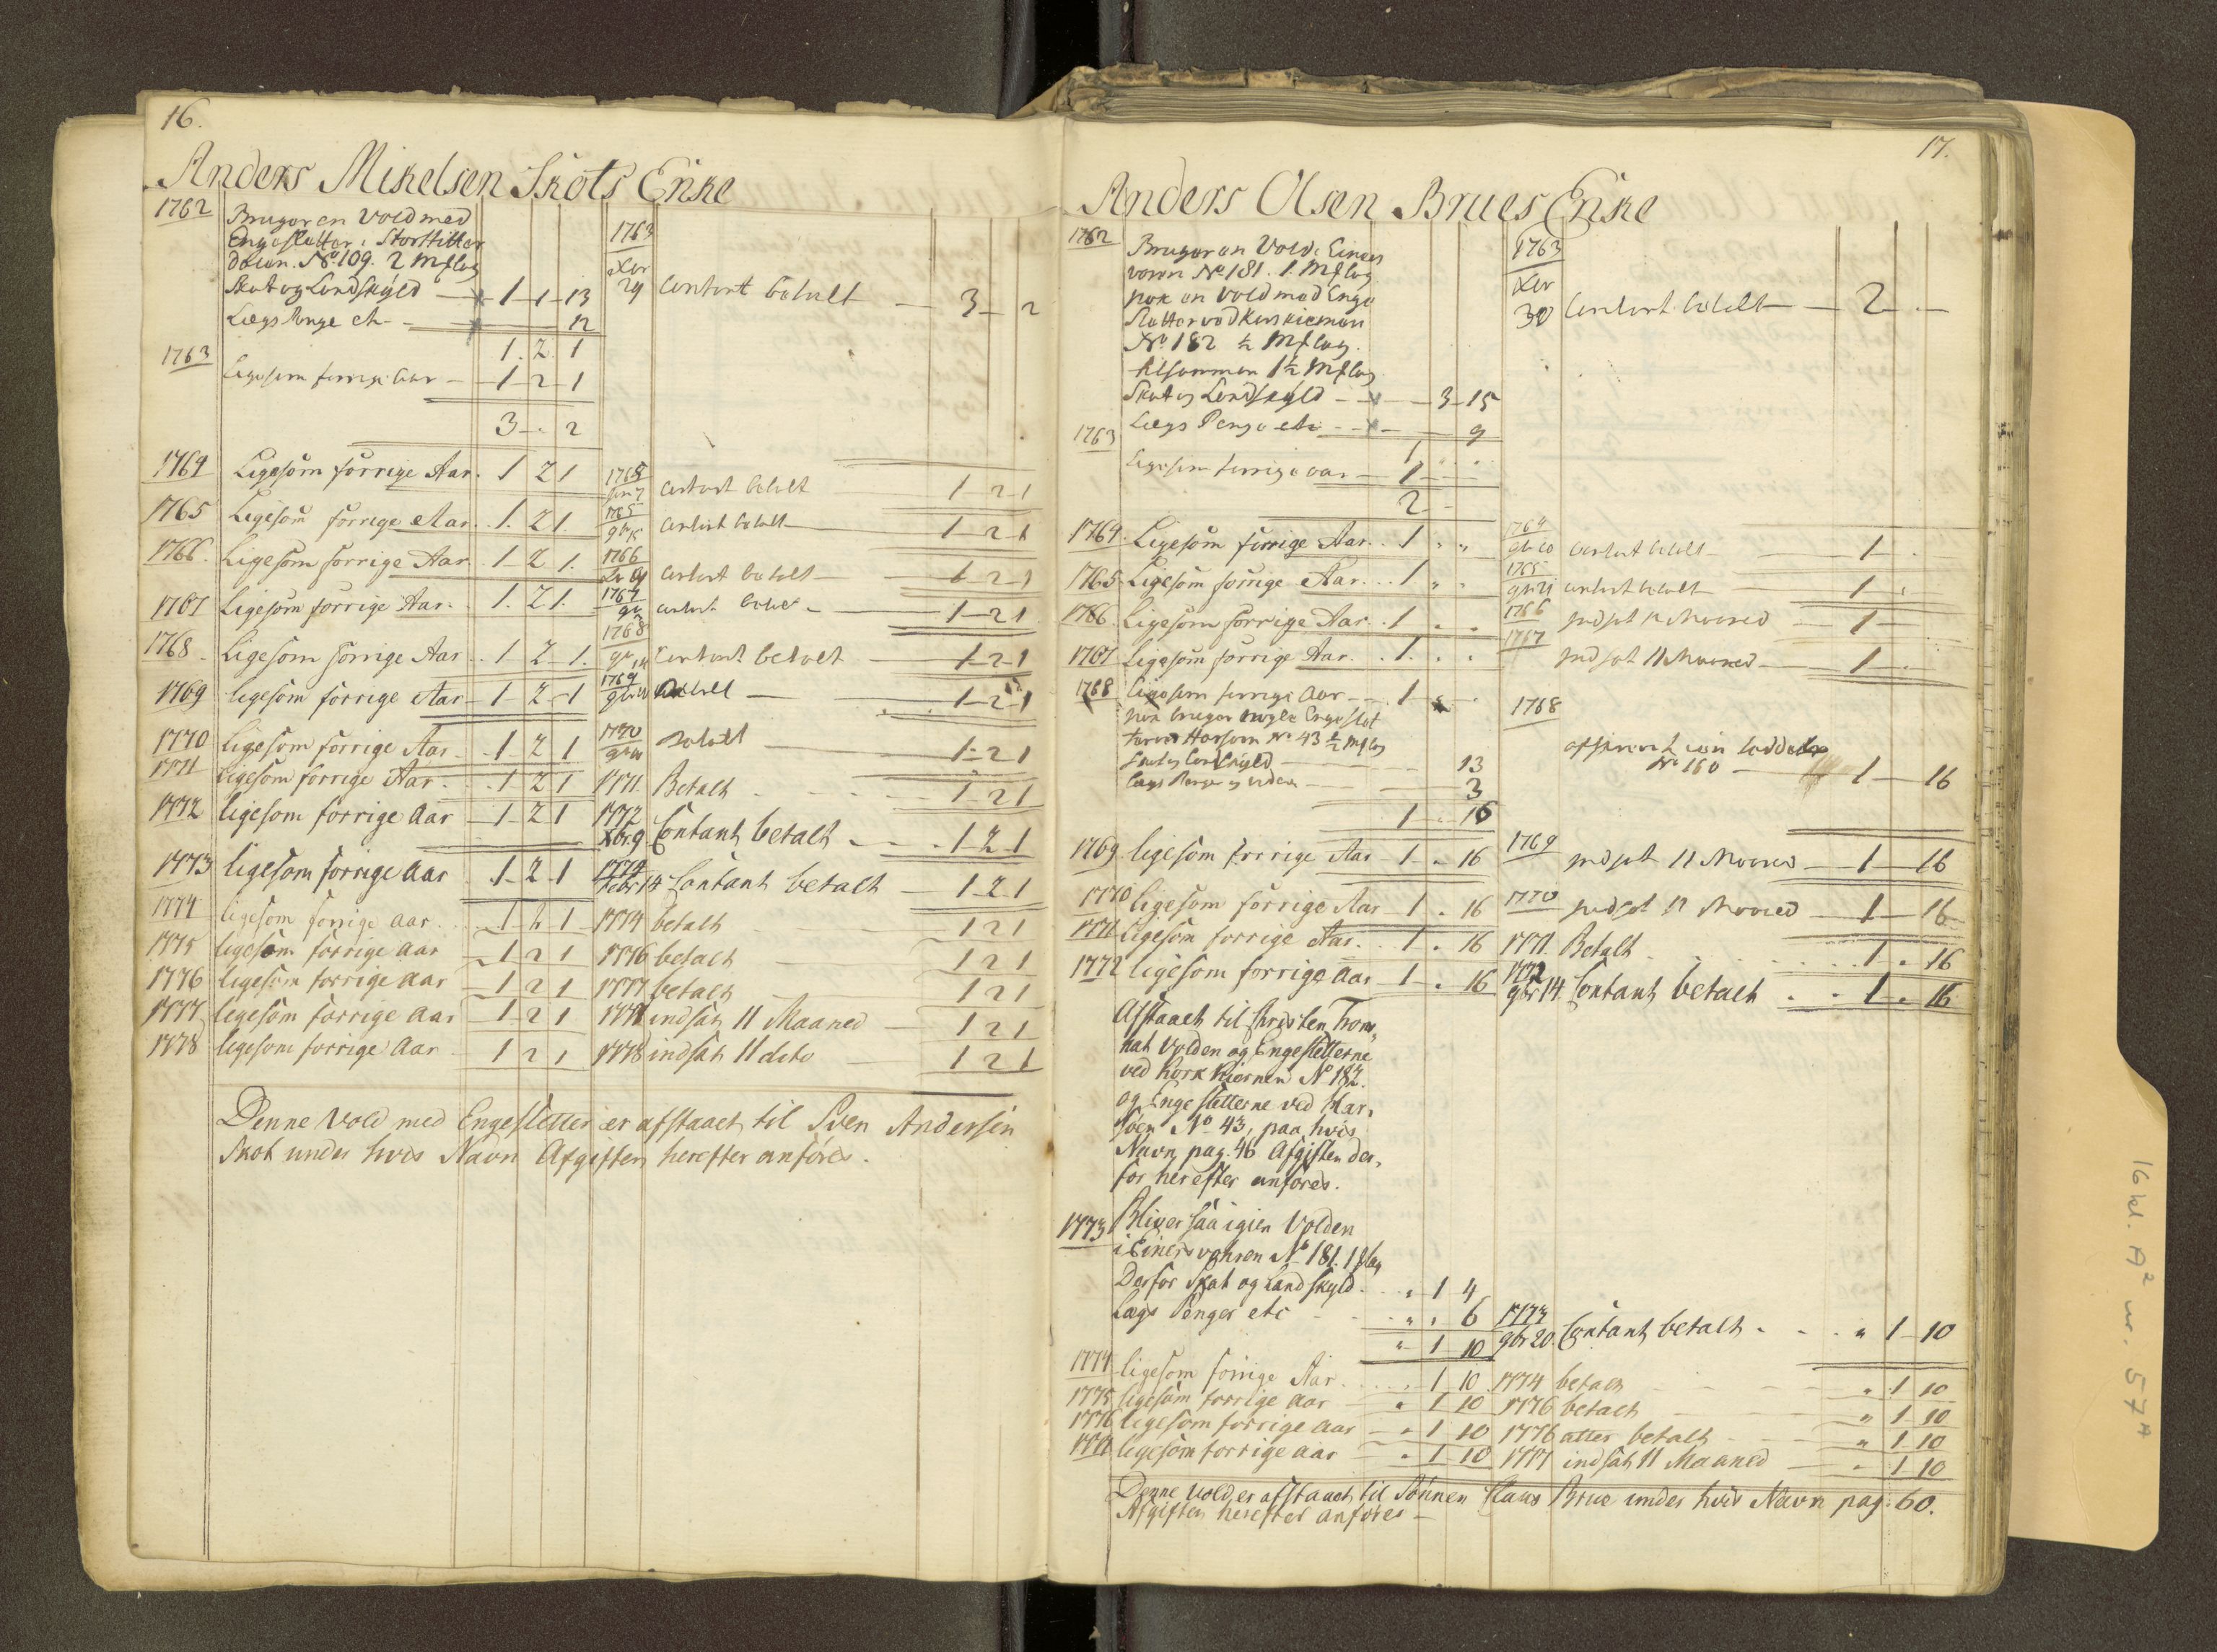 16.
Anders Mikelsen Skots Enke
1762 Bruger en Vold med
Engesletter i Storstilter
dalen. No 109. 2 Mßlag
Skat og Landskyld — 1 - 1 - 13
Lægs Penge etc. — 12
1 . 2 . 1
1763 Ligesom forrige Aar — 1 - 2 - 1
3 - . 2
1764 Ligesom forrige Aar . 1 2 1
1765 Ligesom forrige Aar . 1. 2 1.
1766. Ligesom forrige Aar . 1 - 2 1.
1767 Ligesom forrige Aar . 1. 2 1.
1768 Ligesom forrige Aar . . 1 - 2 - 1.
1769 ligesom forrige Aar - 1 - 2 - 1
1770 ligesom forrige Aar . . 1 2 1
1771 ligesom forrige Aar . . 1 2 1
1772 ligesom forrige Aar - 1 - 2 1
1773 ligesom forrige Aar . 1 - 2 - 1
1774 ligesom forrige Aar . . 1 2 1
1775 ligesom forrige Aar - 1 2 1
1776 ligesom forrige Aar - 1 2 1
1777 ligesom forrige Aar - 1 2 1
1778 ligesom forrige Aar - 1 2 1
1763
Xbr
29 Contant betalt — 3 - 2
1765 contant betalt 1 - 2 - 1
1765 contant betalt — 1 2 1
1766 contant betalt — 1 - 2 - 1
1767 contant betalt — 1 - 2 1
1768 Contant betalt — 1 - 2 - 1
1769 betalt — 1 - 2 - 1
1770 betalt — 1 - 2 1
1771. Betalt — 1 - 2 1
1772
Xbr. 9 Contant betalt - . 1 2 1
1774
Febr 14 Contant betalt — 1 - 2 - 1
1774 betalt — 1 2 1
1776 betalt — 1 2 1
1777 betalt — 1 2 1
1777 indsat 11 Maaned — 1 2 1
1778 indsat 11 dito — 1 2 1
Denne Vold med Engesletter er afstaaet til Sven Andersen
Skot under hvis Navn Afgiften herefter anføres.
17.
Anders Olsen Brues Enke
1762 Bruger en Vold i Einers
voren No 181. 1. Mßlag
nok en Vold med Enge
Sletter ved Kork kiernen
No 182 ½ Mßlag.
tilsammen 1½ Mßlag
Skat og Landskyld — 3 - 15
Lægs Penge etc — 9
1 . .
1763 Ligesom forrige aar — 1 — .
2 - -
1764. Ligesom forrige Aar . . 1 „ „
1765. Ligesom forrige Aar . . . 1. „ .
1766. Ligesom forrige Aar . . 1 . .
1767 Ligesom forrige Aar . . 1. . .
1768 Ligesom forrige Aar — . 1
nok bruger nogle Engeslet
ter ved Harsøen No 43 ½ Mßlag
Skat og Landskyld — 13
Lægs Penge — 3
1 . 16
1769 ligesom forrige Aar - 1 - . 16
1770 ligesom forrige Aar - 1 . 16
1771 ligesom forrige Aar . . 1 . 16
1772 ligesom forrige Aar - 1 - . 16
Afstaaet til Christen Trom„
nat Volden og Engesletterne
ved Kork Kiernen No 182.
og Enge sletterne ved Har„
søen No 43, paa hvis
Navn pag. 46 Afgiften der„
for herefter anføres.
1773 Bliver saa igien Volden
i Einers vohren No 181. 1 ßlag
Derfor Skat og Landskyld . . „ 1 4
Lægs Penger etc . „ . 6
„ 1 10
1774 ligesom forrige Aar . . . . 1 10
1775 ligesom forrige Aar — „ 1 10
1776 ligesom forrige Aar — „ 1 10
1777 ligesom forrige Aar — „ 1 10
1763
Xbr
30 Contant betalt — 2 - . -
1764 contant betalt — 1 - .
1765 contant betalt — 1 .
1766 indsat 11 Maaned — 1 -
1767
indsat 11 Maaned — 1 .
1768
No 160 — 1 — 16
1769 indsat 11 Maaned — 1 — 16
1770 indsat 11 Maaned — 1 — 16
1771. Betalt . . . . 1 . 16
1772
9br 14. Contant betalt . . 1 . 16
1773
9br 20. Contant betalt . . . „ 1 - 10
1774 betalt — „ 1 10
1776 betalt — „ 1 10
1776 atter betalt — „ 1 10
1777 indsat 11 Maaned — „ 1 10
Denne Vold er afstaaet til Sønnen Claus Brue under hvis Navn pag. 60.
Afgiften herefter anføres —
16 kl. A² nr. 57A